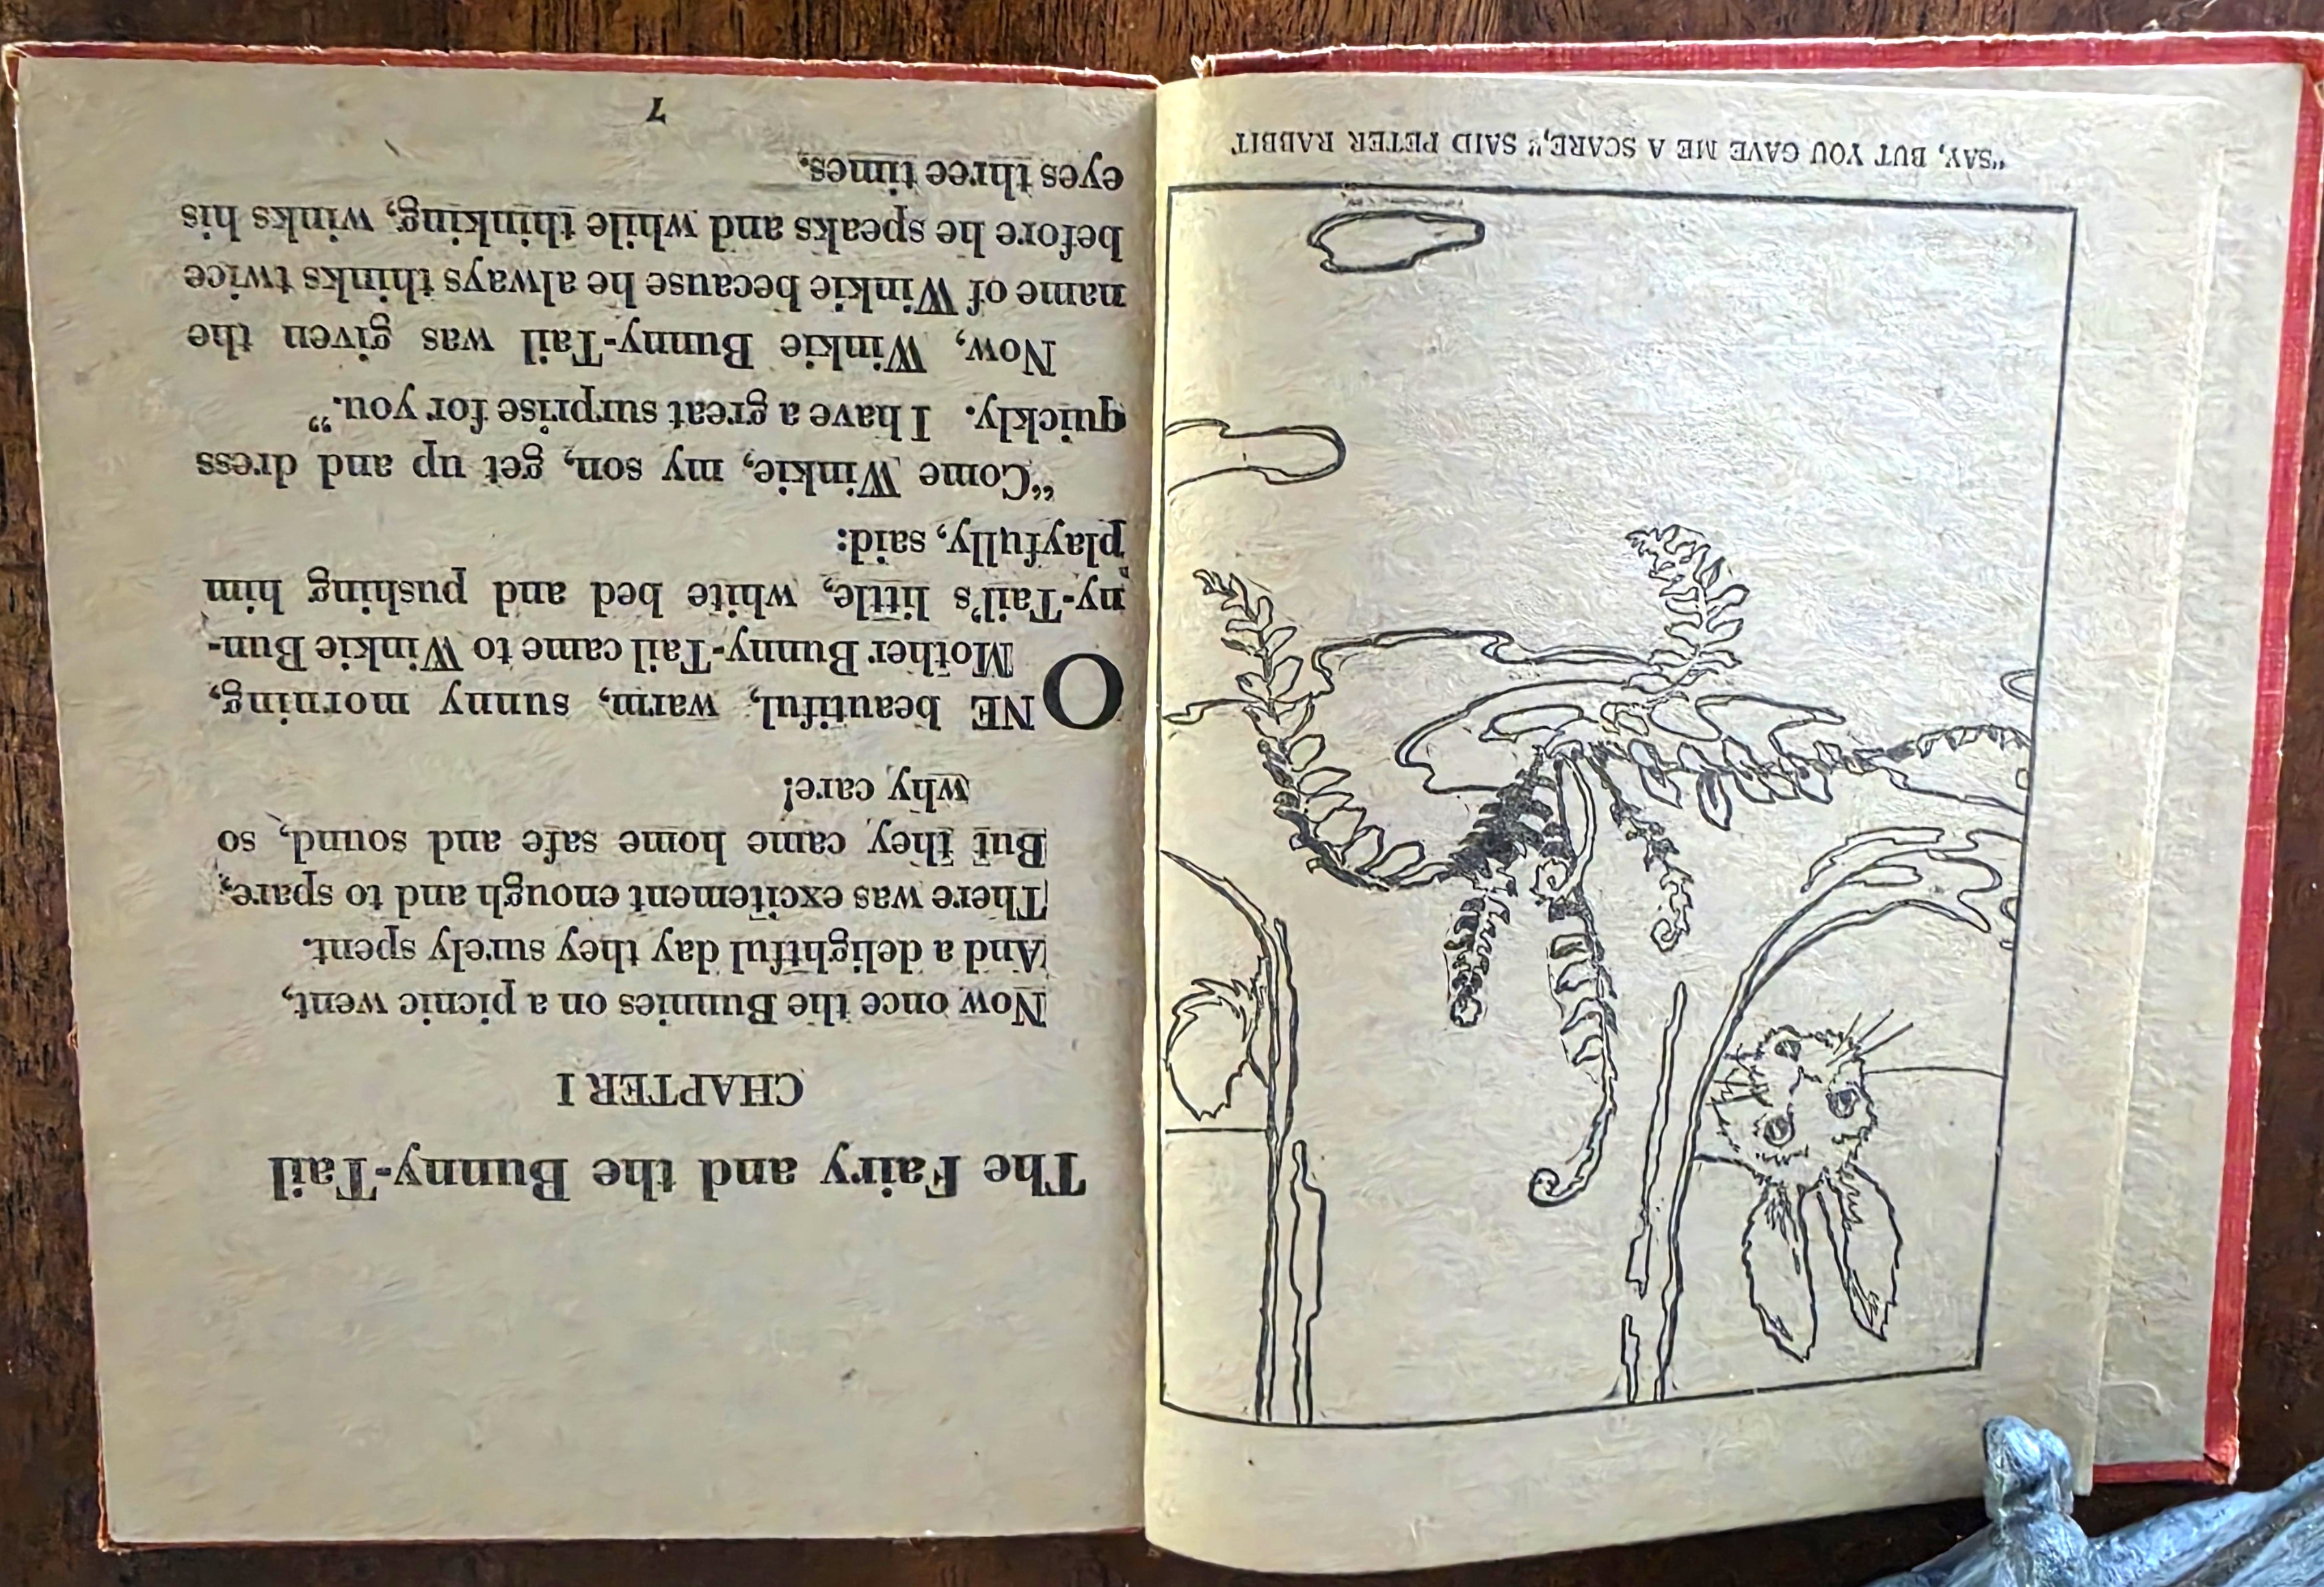 "SAY, BUT YOU GAVE ME A SCARE," SAID PETER RABBIT
The Fairy and the Bunny-Tail
CHAPTER I
Now once the Bunnies on a picnic went,
And a delightful day they surely spent.
There was excitement enough and to spare,
But they came home safe and sound, so
why care!
ONE beautiful, warm, sunny morning,
Mother Bunny-Tail came to Winkie Bun-
ny-Tail's little, white bed and pushing him
playfully, said:
"Come Winkie, my son, get up and dress
quickly. I have a great surprise for you."
Now, Winkie Bunny-Tail was given the
name of Winkie because he always thinks twice
before he speaks and while thinking, winks his
eyes three times.
7